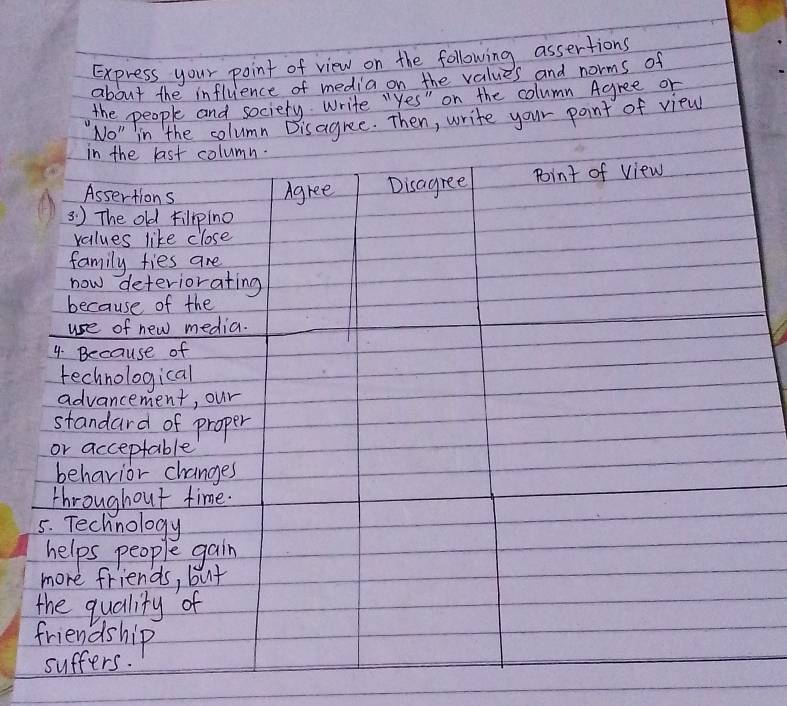 Express your point of view on the following assertions
about the influence of media on the values and norms of
the people and society. Write "Yes" on the column Agree or
"No" in the column Disagree. Then, write your point of view
in the last column.
Assertions Agree Disagree Point of View
3.) The old Filipino
values like close
family ties are
now deteriorating
because of the
use of new media.
4. Because of
technological
advancement, our
standard of proper
or acceptable
behavior changes
throughout time.
5. Technology
helps people gain
more friends, but
the quality of
friendship
suffers.